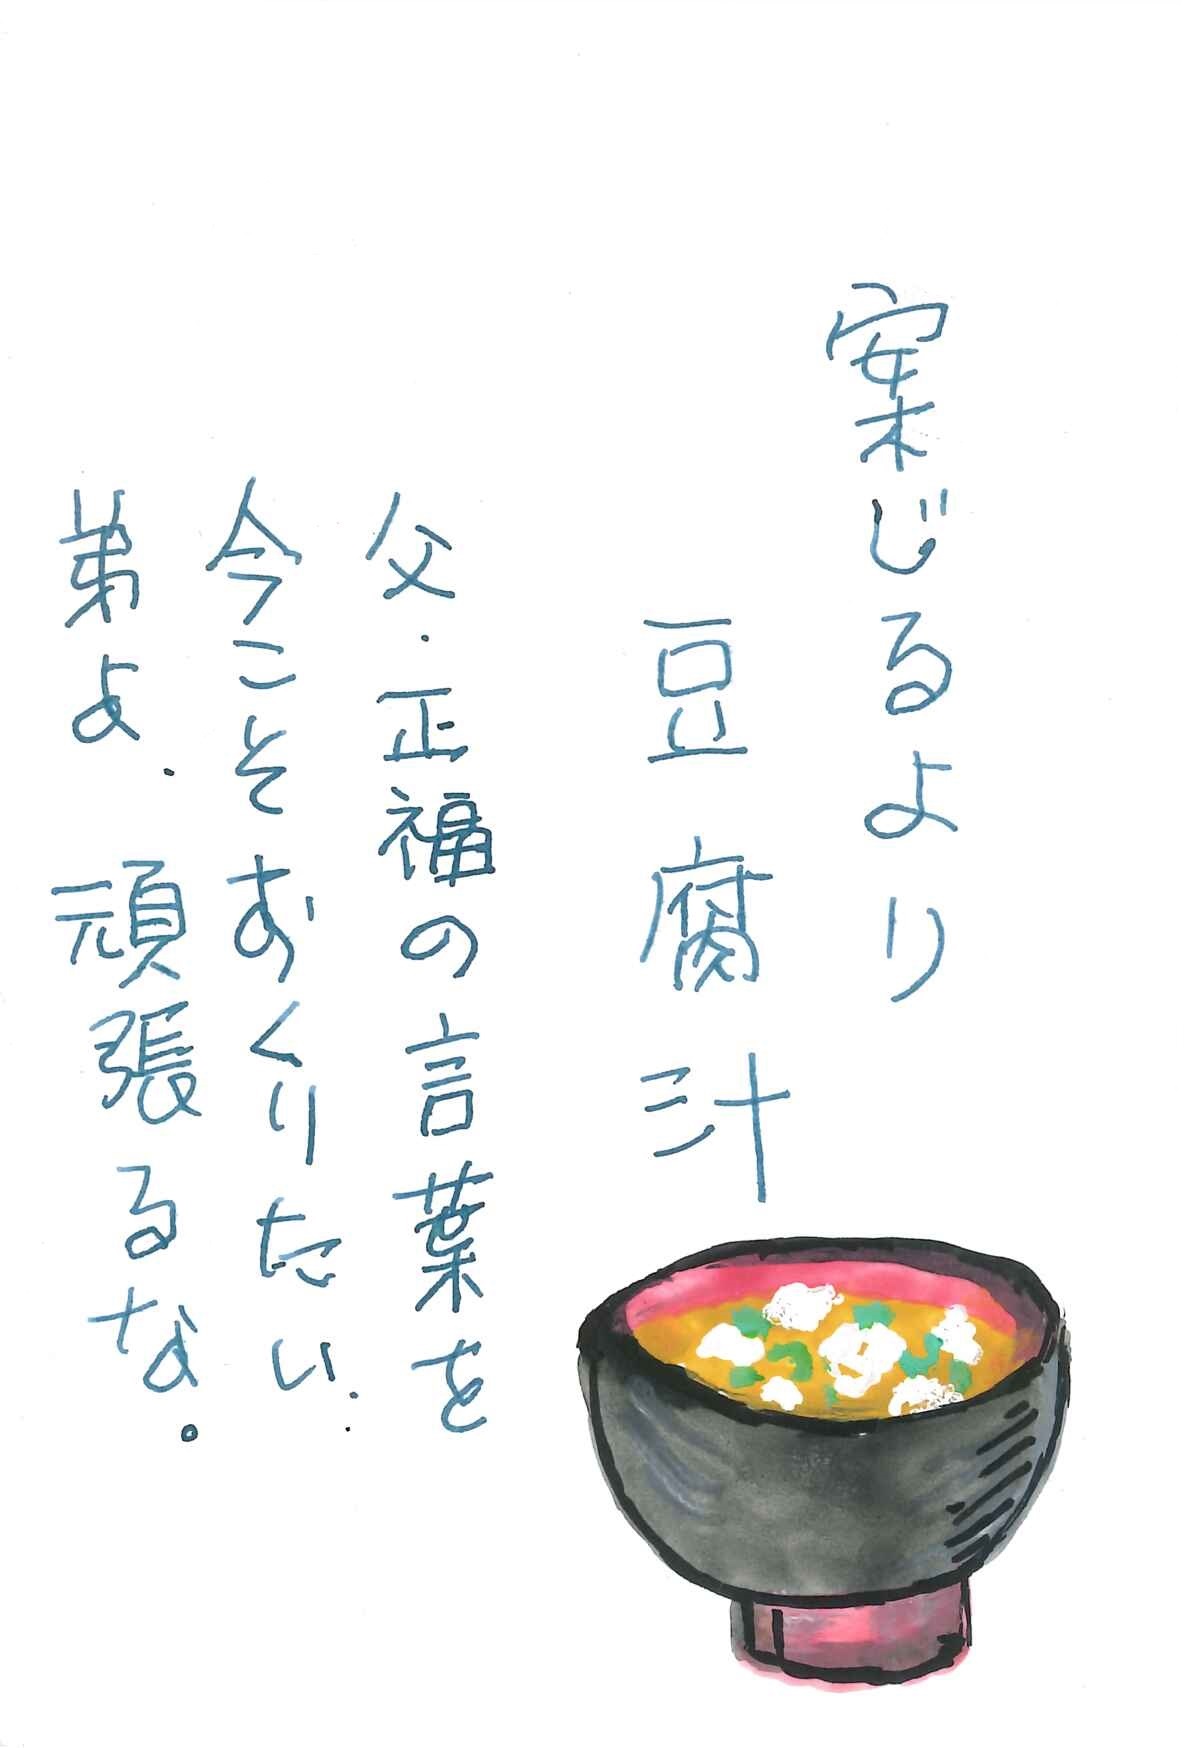 案じるより
豆腐汁
父.正福の言葉を
今こそおくりたい.
弟よ.頑張るな。